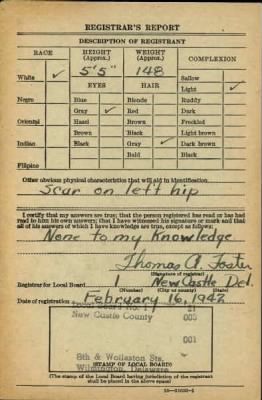 REGISTRAR'S REPORT
DESCRIPTION OF REGISTRANT
RACE HEIGHT (Approx.) WEIGHT (Approx.) COMPLEXION
White ✓ 5'5" 148 Sallow
EYES HAIR Light ✓
Negro Blue Blonde Ruddy
Gray ✓ Red Dark
Oriental Hazel Brown Freckled
Brown Black Light brown
Indian Black Gray ✓ Dark brown
Bald Black
Filipino
Other obvious physical characteristics that will aid in identification
Scar on left hip
I certify that my answers are true; that the person registered has read or has had
read to him his own answers; that I have witnessed his signature or mark and that
all of his answers of which I have knowledge are true, except as follows:
None to my Knowledge
Thomas A. Foster
(Signature of registrar)
Registrar for Local Board 1 New Castle Del.
(Number) (City or county) (State)
Date of registration February 16, 1942
Local Board No. 1 21
New Castle County 003
001
8th & Wollaston Sts.
Wilmington, Delaware
(STAMP OF LOCAL BOARD)
(The stamp of the Local Board having jurisdiction of the registrant
shall be placed in the above space)